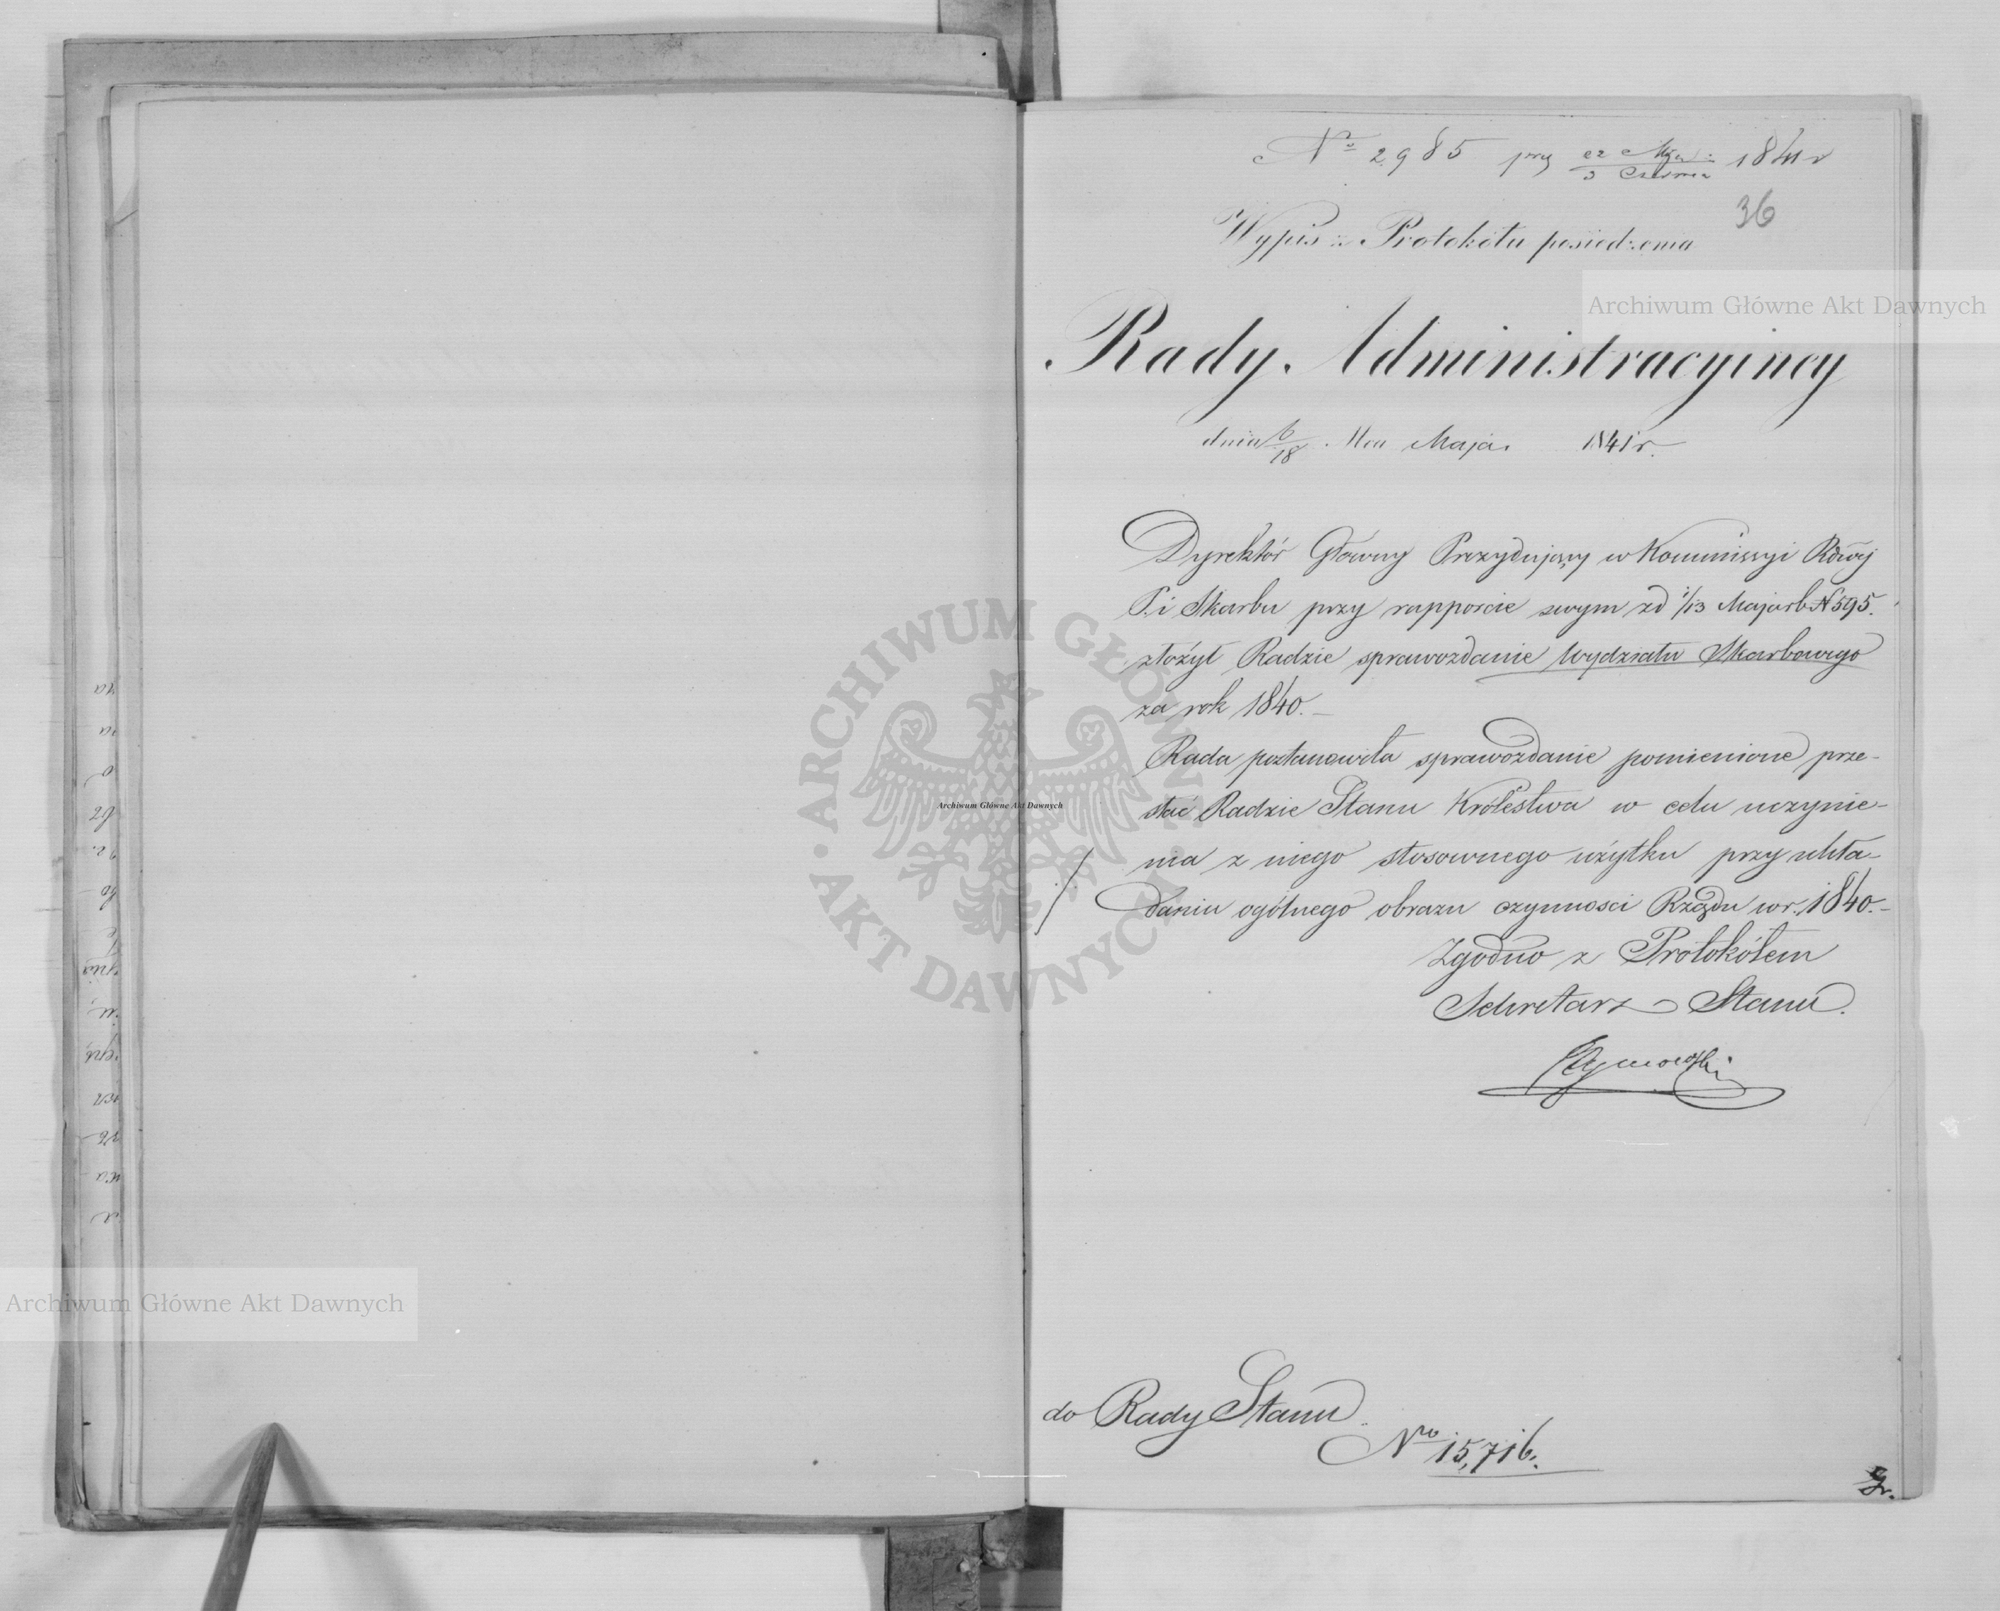 No 2985 prez 22 Maja / 3 Czerwca 1841 r
36
Wypis z Protokółu posiedzenia
Rady Administracyiney
dnia 6/18 Mca Maja 1841 r.
Dyrektór Główny Prezydujący w Kommissyi Rdwéj
P. i Skarbu przy rapporcie swym zd 1/13 Maja rb N 595.
złożył Radzie sprawozdanie Wydziału Skarbowego
za rok 1840. –
Rada postanowiła sprawozdanie pomienione prze-
słać Radzie Stanu Królestwa w celu uczynie-
nia z niego stosownego użytku przy ukła-
daniu ogólnego obrazu czynnosci Rządu w r. 1840. –
Zgodno z Protokółem
Sekretarz Stanu.
Tymowski
do Rady Stanu.
No 15,716.
Archiwum Główne Akt Dawnych
Archiwum Główne Akt Dawnych
Archiwum Główne Akt Dawnych
ARCHIWUM GŁÓWNE AKT DAWNYCH